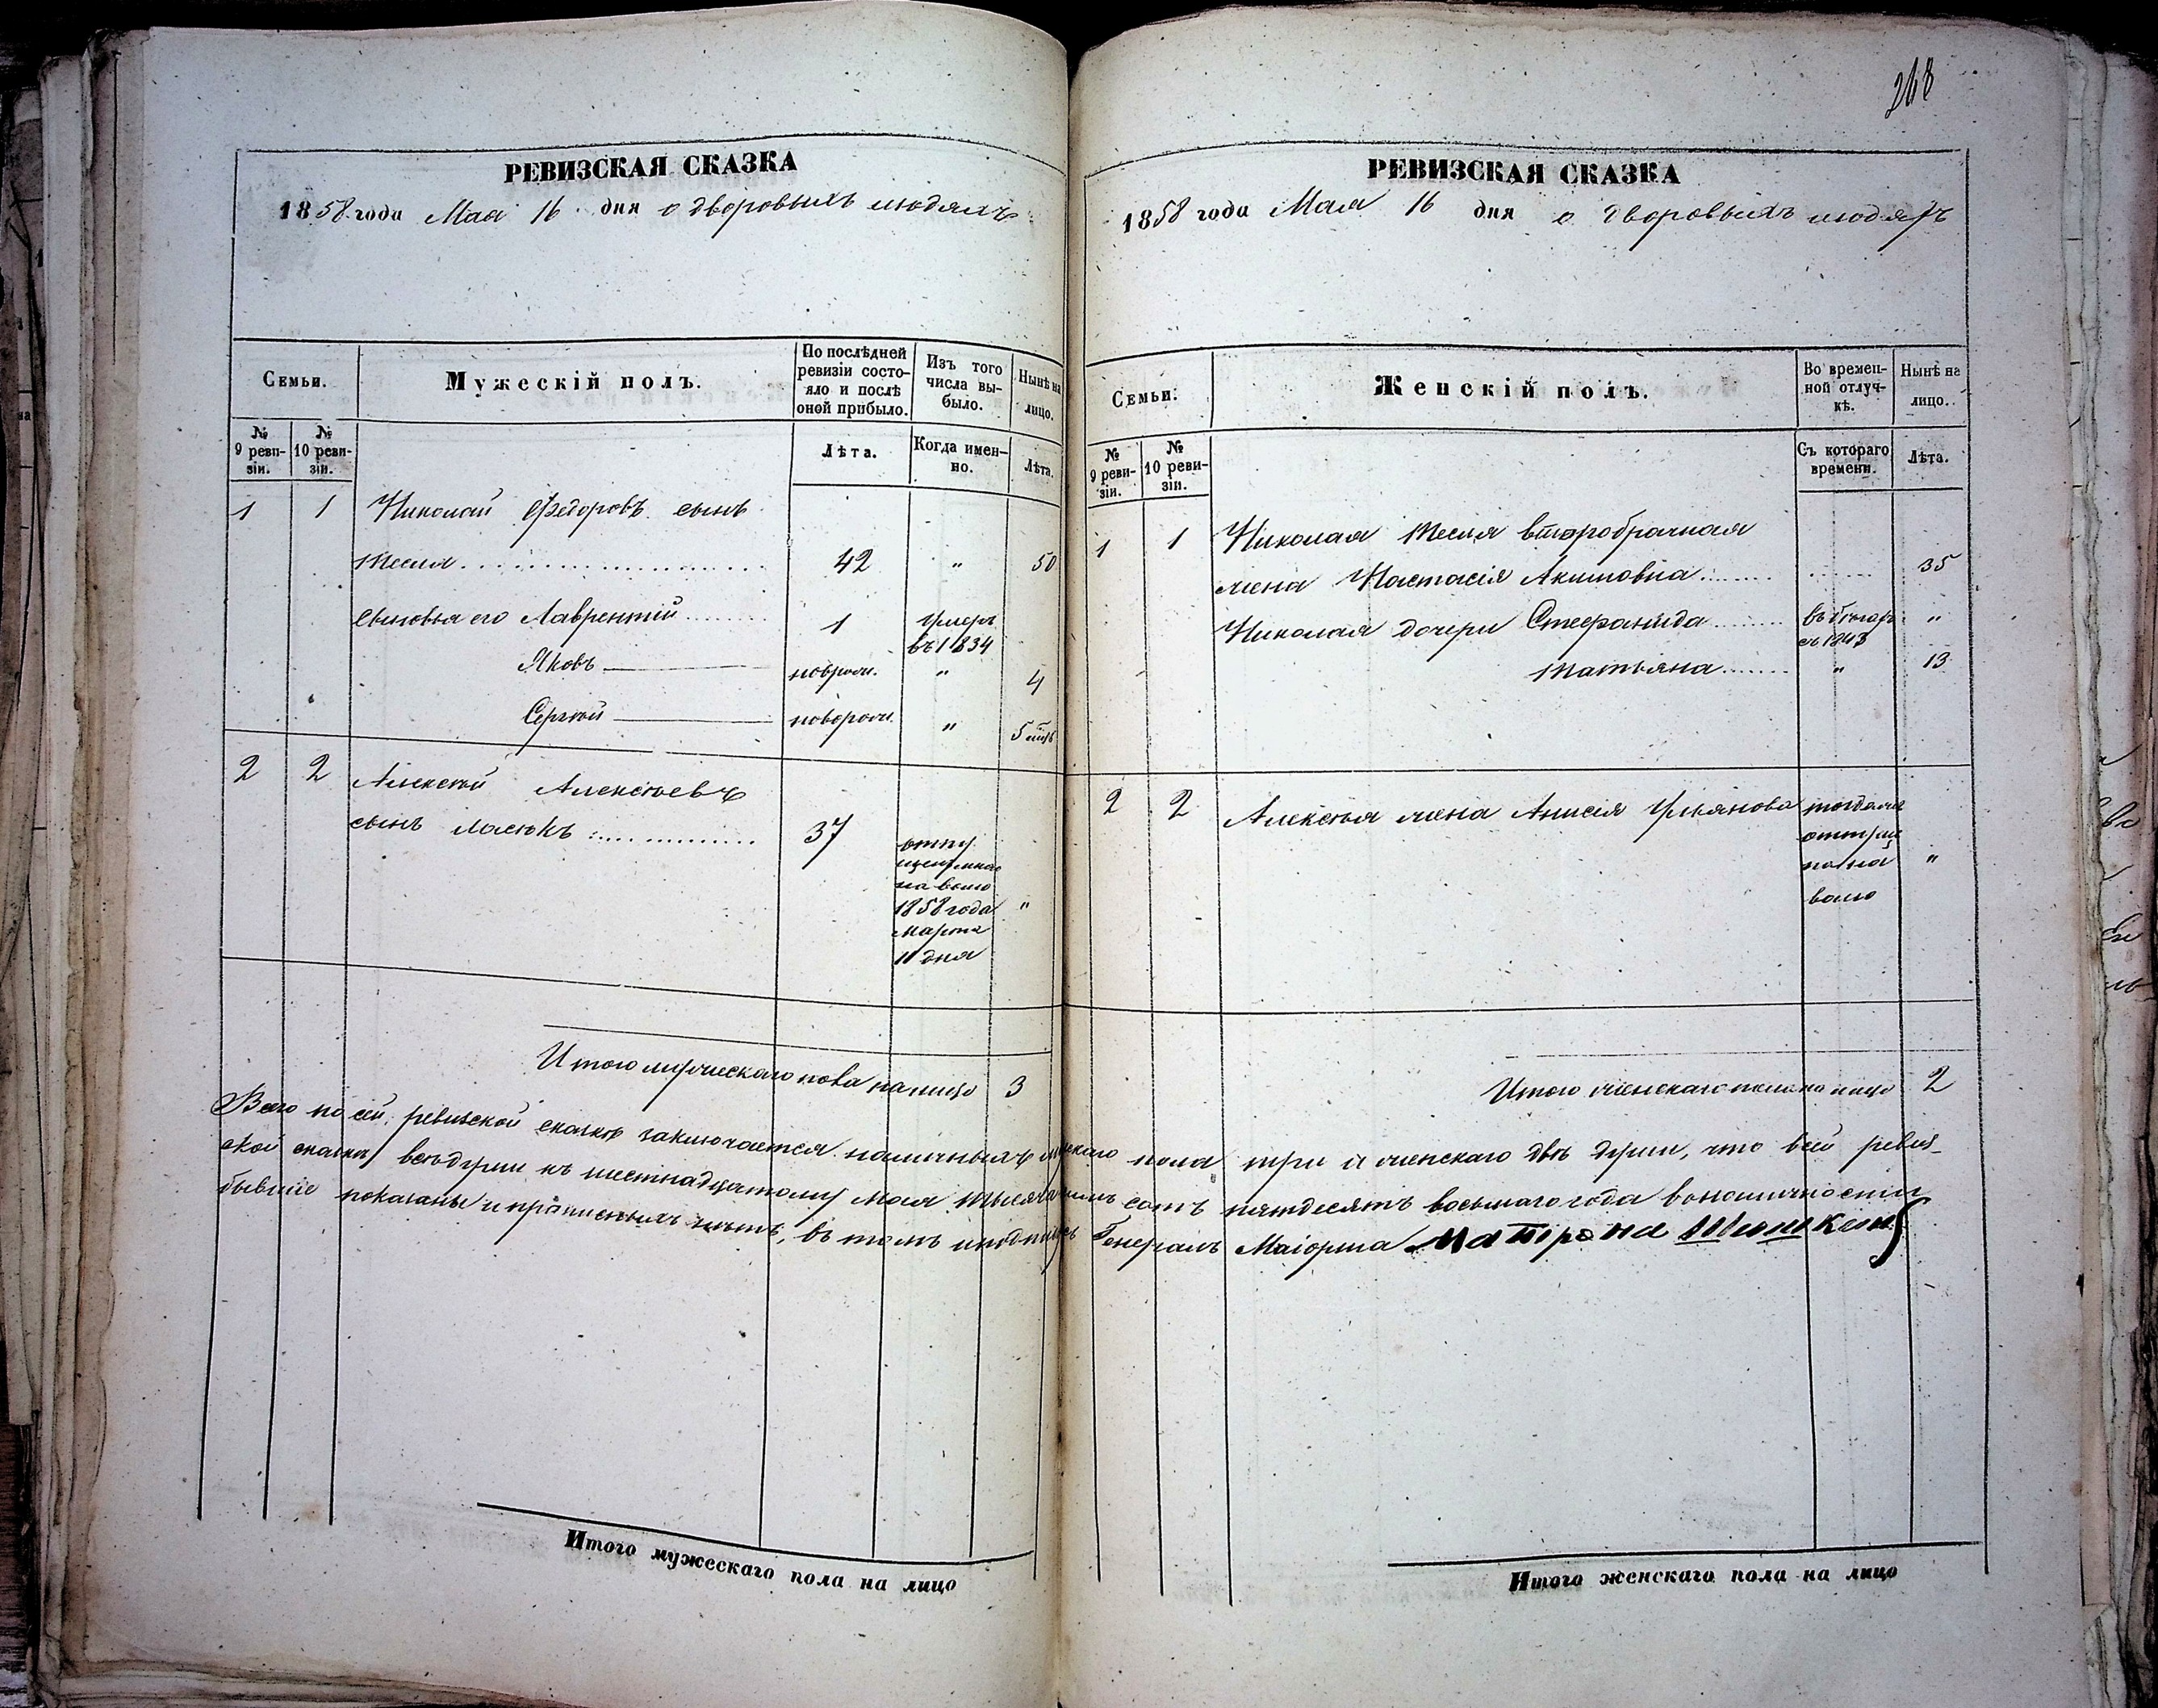 268
РЕВИЗСКАЯ СКАЗКА
1858 года Мая 16 дня о дворовыхъ людяхъ
Семьи.
Мужескій полъ.
По послѣдней ревизіи состо-
яло и послѣ
оной прибыло.
Изъ того
числа вы-
было.
Нынѣ на
лицо.
№
9 реви-
зіи.
№
10 реви-
зіи.
Лѣта.
Когда имен-
но.
Лѣта.
1 1 Николай Федоровъ сынъ
Тесля 42 " 50
сыновья его Лаврентій 1 умеръ
въ 1834
Яковъ новорож. " 4
Сергѣй новорож. " 5
2 2 Алексѣй Алексѣевъ
сынъ 37
на волю
1858 года "
Марта
11 дня
Итого мужескаго пола на лицо 3
РЕВИЗСКАЯ СКАЗКА
1858 года Мая 16 дня о дворовыхъ людяхъ
Семьи.
Женскій полъ.
Во времен-
ной отлуч-
кѣ.
Нынѣ на
лицо.
№
9 реви-
зіи.
№
10 реви-
зіи.
Съ котораго
времени.
Лѣта.
1 1 Николая Тесля второбрачная
жена Настасія Акимовна 35
Николая дочери Стефанида въ бѣгах "
съ 1843
Татьяна " 13
2 2 Алексѣя жена Анисія Ульянова
на "
волю
Итого женскаго пола на лицо 2
Всего по сей ревизской сказкѣ заключается наличныхъ мужскаго пола три и женскаго двѣ души, что въ сей ревиз-
ской сказкѣ всѣ души къ шестнадцатому Мая тысяча восемь сотъ пятдесятъ восьмаго года въ наличности
бывшіе показаны и прописныхъ нѣтъ, въ томъ и подписусь Генералъ Маіорша Матрона Шишкина
Итого мужескаго пола на лицо
Итого женскаго пола на лицо